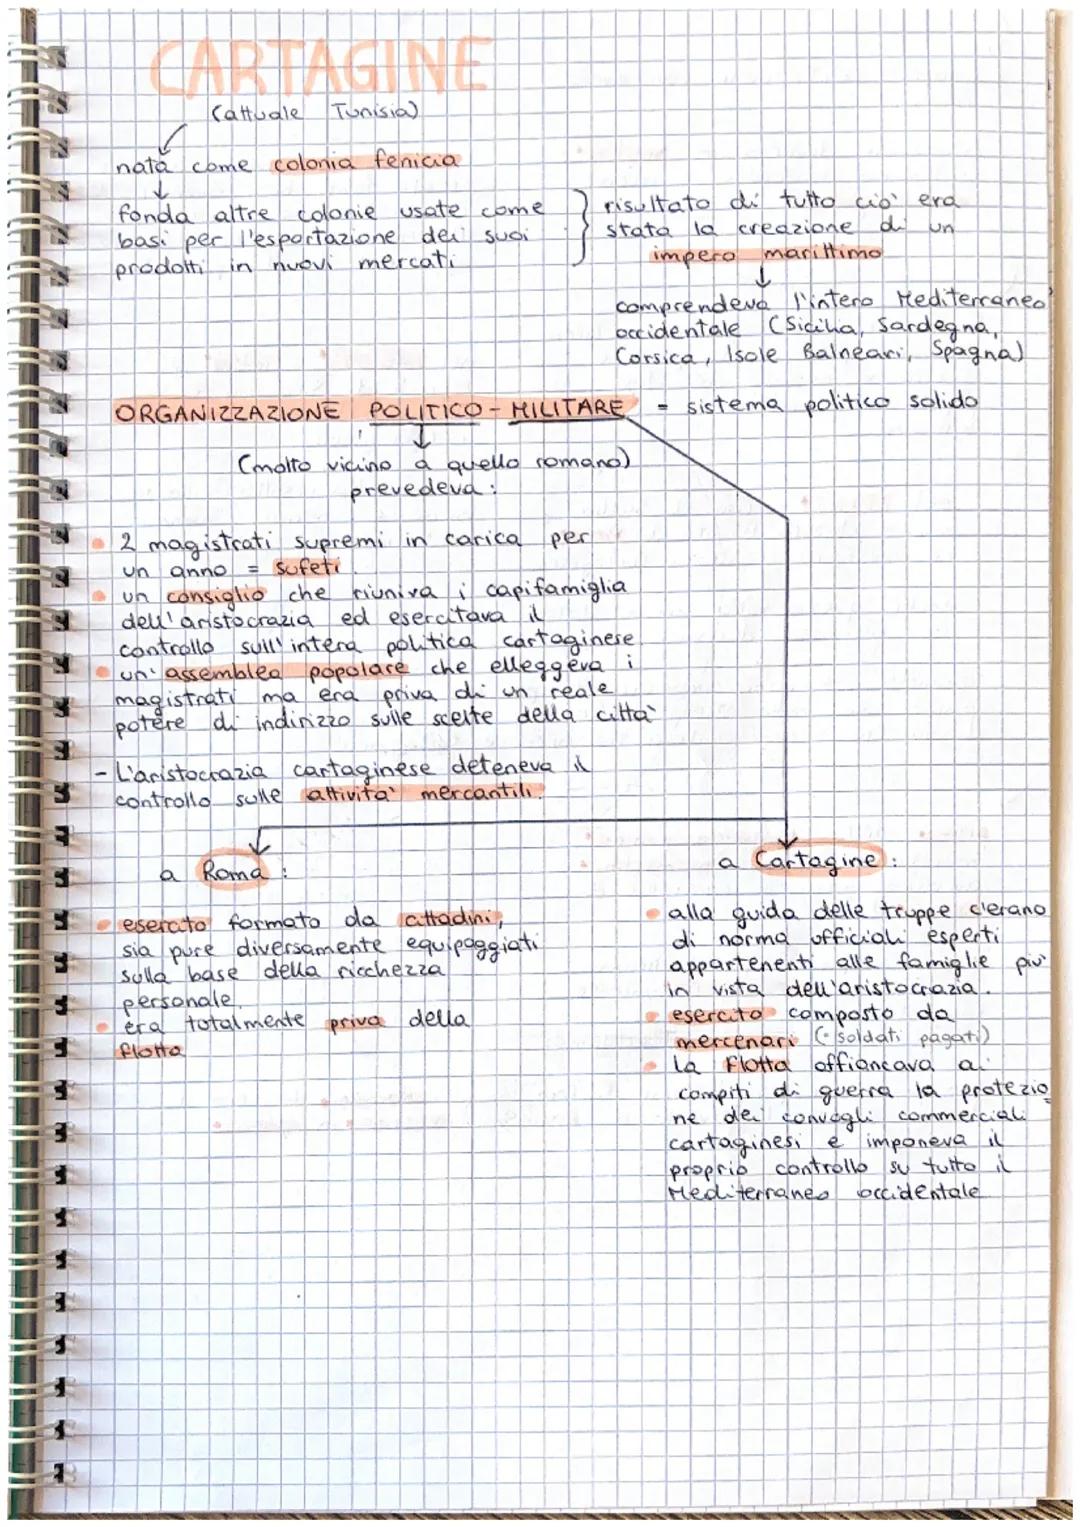 CARTAGINE
(attuale Tunisia)
nata come colonia fenicia
fonda altre colonie usate come
basi per l'esportazione dei suoi
prodotti in nuovi mercati
risultato di tutto ciò era
stata la creazione di un
impero marittimo
comprendeva l'intero Mediterraneo
occidentale (Sicilia, Sardegna,
Corsica, Isole Balneari, Spagna)
ORGANIZZAZIONE POLITICO - MILITARE - sistema politico solido
(molto vicino a quello romano)
prevedeva:
• 2 magistrati supremi in carica per
un anno = sufeti
• un consiglio che riuniva i capifamiglia
dell'aristocrazia ed esercitava il
controllo sull'intera politica cartaginese
• un' assemblea popolare che elleggeva i
magistrati ma era priva di un reale
potere di indirizzo sulle scelte della città
- L'aristocrazia cartaginese deteneva il
controllo sulle attività mercantili.
a Roma:
• esercito formato da cittadini,
sia pure diversamente equipaggiati
sulla base della ricchezza
personale.
• era totalmente priva della
flotta
a Cartagine:
• alla guida delle truppe c'erano
di norma ufficiali esperti
appartenenti alle famiglie più
in vista dell'aristocrazia.
• esercito composto da
mercenari (= soldati pagati)
• la flotta affiancava ai
compiti di guerra la protezio
ne dei convogli commerciali
cartaginesi e imponeva il
proprio controllo su tutto il
Mediterraneo occidentale